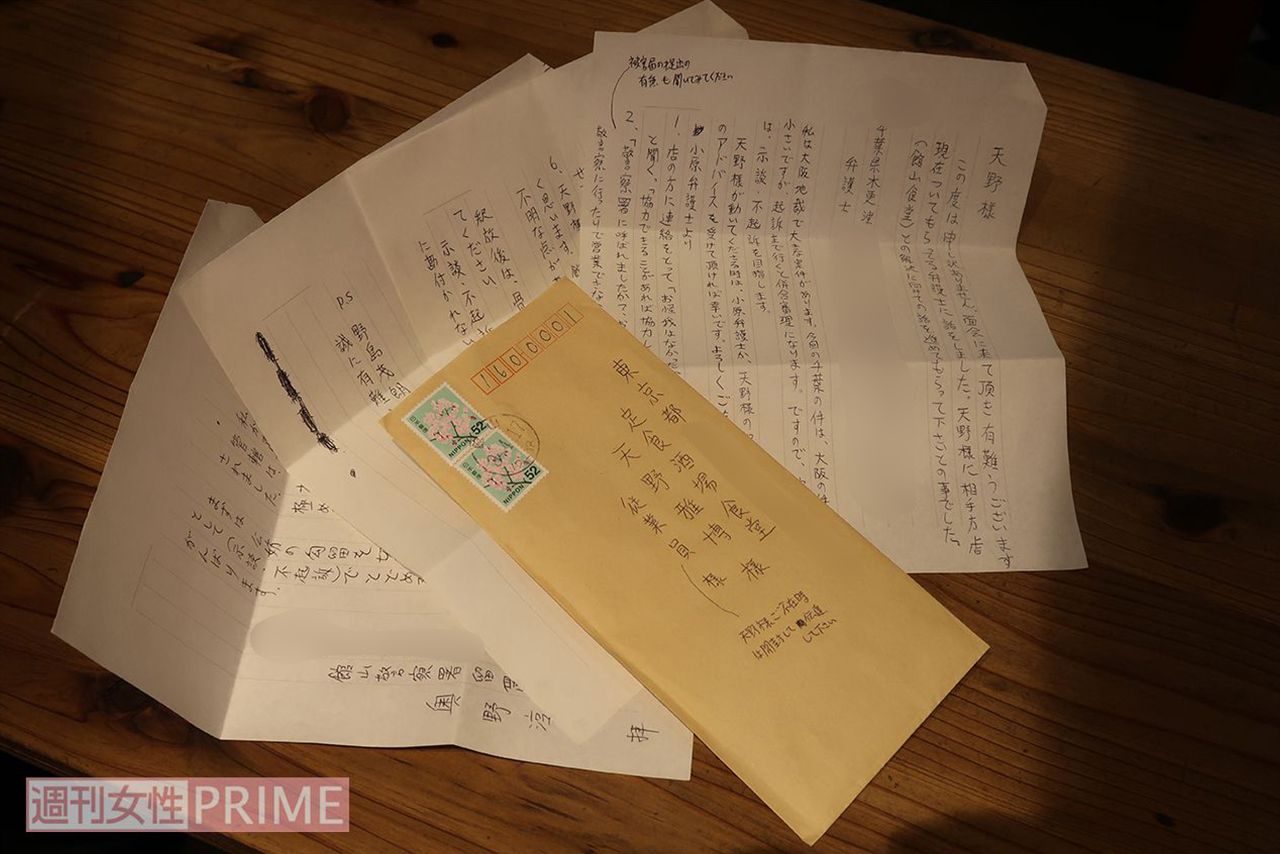 被害届の提出の
有無も聞いてみてください
天野様
この度は申し訳ありません。面会に来て頂き有難うございます
現在ついてもらってる弁護士に話をしました。天野様に相手方店
(館山食堂)との解決に向けての話を進めてもらって下さいとの事でした。
千葉県木更津
弁護士
私は大阪地裁で大きな事件があります。今回の千葉の件は、大阪の件
小さいですが、起訴まで行くと併合審理になります。ですので、
は、示談・不起訴を目指します。
天野様が動いてくださる時は、小原弁護士が、天野様の
のアドバイスを受けて頂ければ幸いです。よろしくご
小原弁護士より
1、店の方に連絡をとって「お怪我はなかっ
と聞く、「協力できることがあれば協力し
2、「警察署に呼ばれましたか?」
警察に行ったりで営業できな
せ
6、天野様
く思います。
不明な点が
釈放後は、
てください
示談・不起
に気付かれな
PS
野島茂朗
誠に有難
私が
・管轄は
されました。
まずは
として(示談
がんばります。
極め
の勾留を
不起訴)でとどめ
館山警察署留置
奥野淳
拝
1600001
日本郵便
52
NIPPON
日本郵便
52
NIPPON
東京都
定食酒場食堂
天野雅博様
従業員様
天野様ご不在時
は開封して伝達
して下さい
週刊女性PRIME